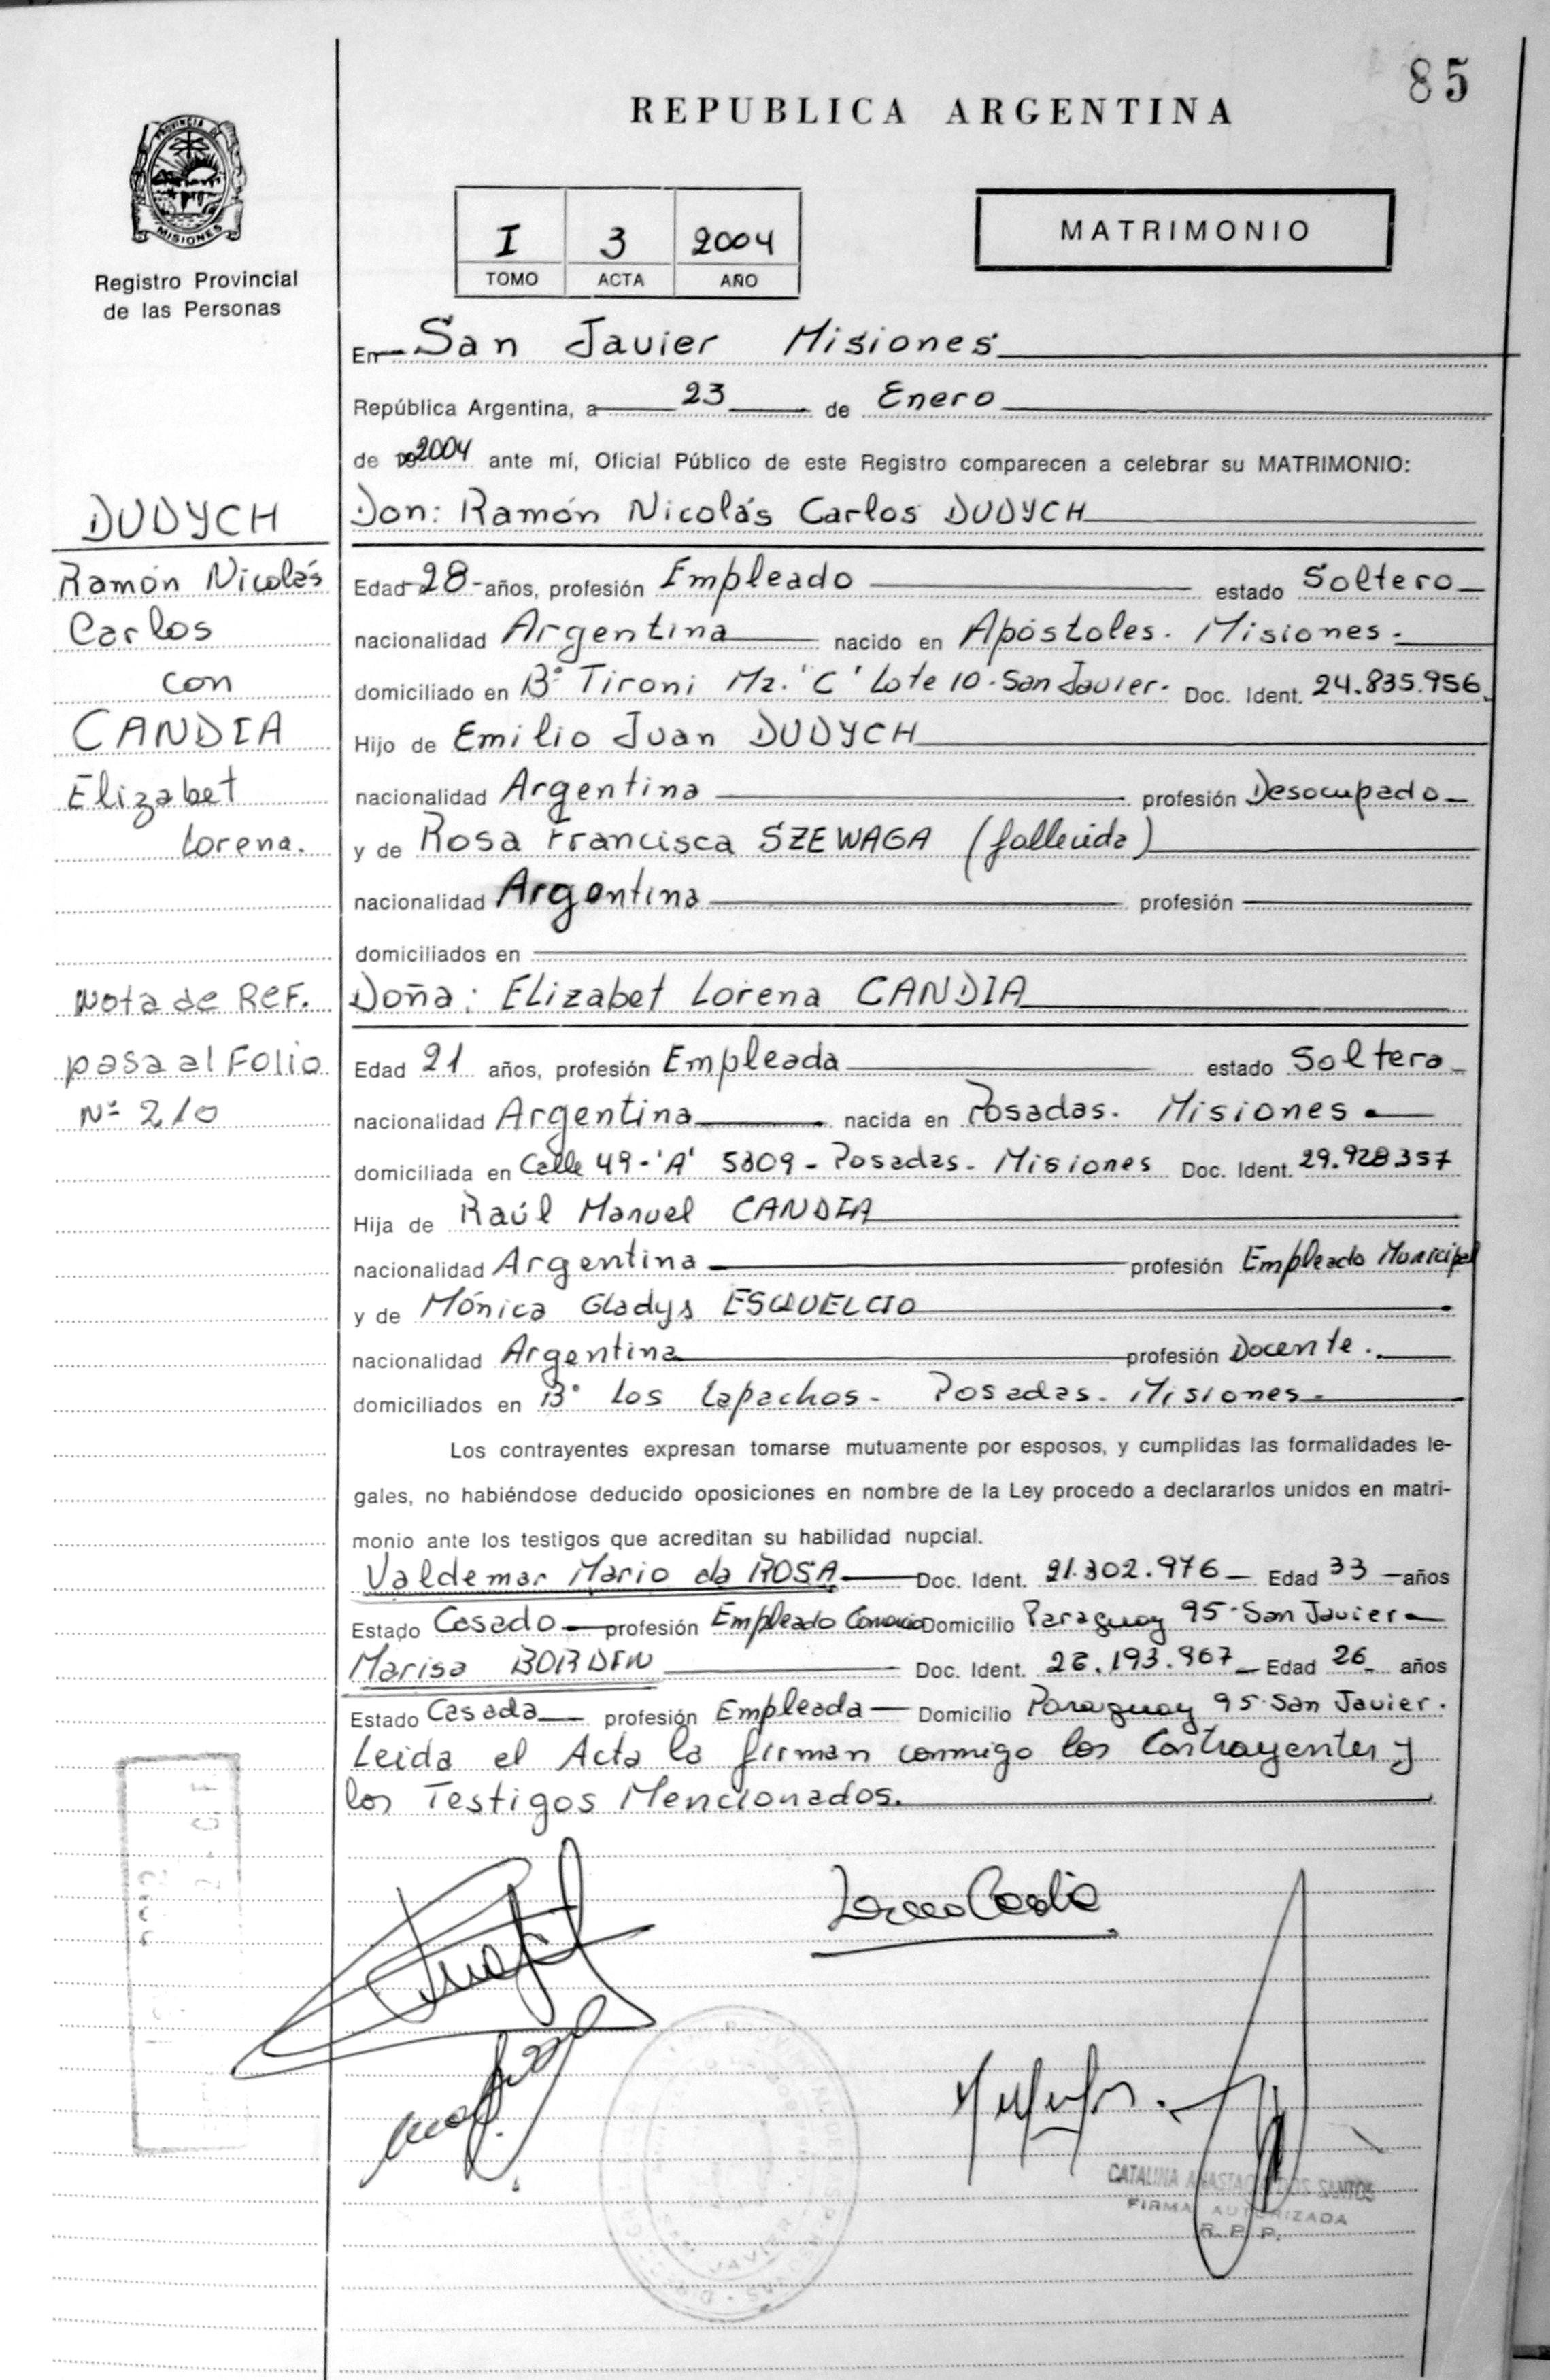 85
REPUBLICA ARGENTINA
PROVINCIA DE
MISIONES
Registro Provincial
de las Personas
I 3 2004
TOMO ACTA AÑO
MATRIMONIO
En San Javier Misiones
República Argentina, a 23 de Enero
de 2004 ante mí, Oficial Público de este Registro comparecen a celebrar su MATRIMONIO:
DUDYCH
Ramón Nicolás
Carlos
con
CANDIA
Elizabet
Lorena.
Nota de REF.
pasa al Folio
Nº 210
Don: Ramón Nicolás Carlos DUDYCH
Edad 28 años, profesión Empleado estado Soltero
nacionalidad Argentina nacido en Apóstoles. Misiones.
domiciliado en Bº Tironi Mz. "C" Lote 10. San Javier. Doc. Ident. 24.835.956
Hijo de Emilio Juan DUDYCH
nacionalidad Argentina profesión Desocupado
y de Rosa Francisca SZEWAGA (fallecida)
nacionalidad Argentina profesión
domiciliados en
Doña: Elizabet Lorena CANDIA
Edad 21 años, profesión Empleada estado Soltera
nacionalidad Argentina nacida en Posadas. Misiones
domiciliada en Calle 49-'A' 5309 - Posadas - Misiones Doc. Ident. 29.928.357
Hija de Raúl Manuel CANDIA
nacionalidad Argentina profesión Empleado Municipal
y de Mónica Gladys ESQUELCIO
nacionalidad Argentina profesión Docente.
domiciliados en Bº Los Lapachos - Posadas - Misiones
Los contrayentes expresan tomarse mutuamente por esposos, y cumplidas las formalidades le-
gales, no habiéndose deducido oposiciones en nombre de la Ley procedo a declararlos unidos en matri-
monio ante los testigos que acreditan su habilidad nupcial.
Valdemar Mario da ROSA Doc. Ident. 21.302.976 Edad 33 años
Estado Casado profesión Empleado Comercio Domicilio Paraguay 95 - San Javier
Marisa BORDIN Doc. Ident. 26.193.967 Edad 26 años
Estado Casada profesión Empleada Domicilio Paraguay 95 - San Javier.
Leida el Acta la firman conmigo los Contrayentes y
los Testigos Mencionados.
CATALINA DOS SANTOS
FIRMA AUTORIZADA
R. P. P.